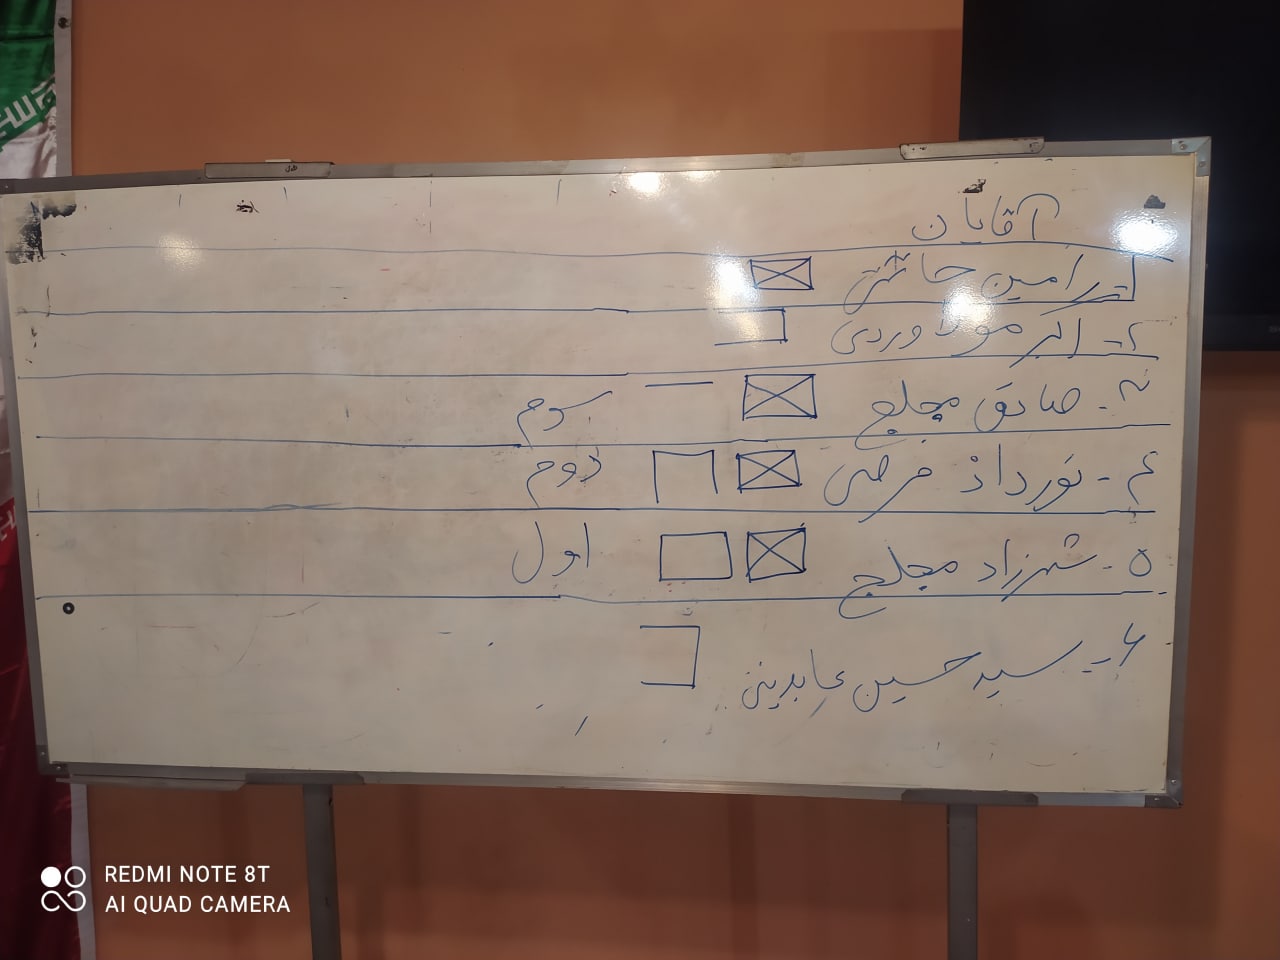 آقایان
۱- رامین حاتمی
۲- اکبر مولاوردی
۳- صادق مچلچ سوم
۴- نورداد فرضی دوم
۵- شهرزاد مچلچ اول
۶- سید حسین عابدینی
REDMI NOTE 8T
AI QUAD CAMERA